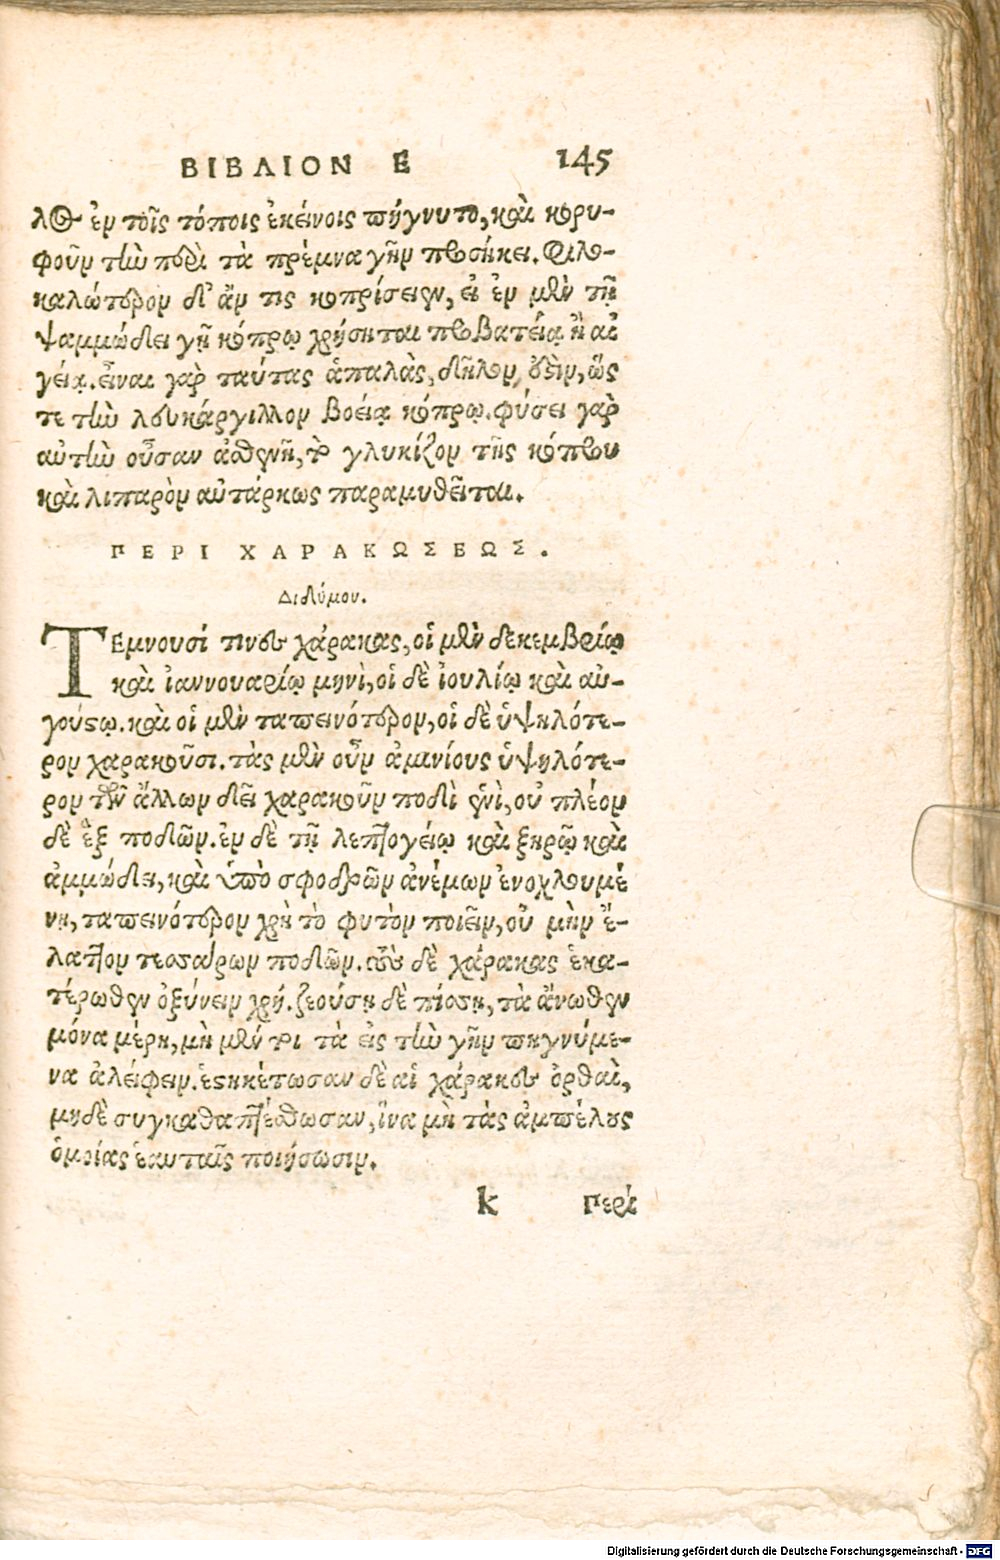 ΒΙΒΛΙΟΝ Ε 145
λος ἐν τοῖς τόποις ἐκείνοις πήγνυτο, καὶ κορυ-
φοῦν τὴν περὶ τὰ πρέμνα γῆν προσήκει. Φιλο-
καλώτερον δ' ἄν τις κοπρίσειεν, εἰ ἐν μὲν τῇ
ψαμμώδει γῇ κόπρῳ χρήσηται προβατείᾳ ἢ αἰ
γείᾳ. εἶναι γὰρ ταύτας ἁπαλὰς, δῆλον, ὥς
τε τὴν λευκάργιλλον βοείᾳ κόπρῳ. φύσει γὰρ
αὐτὴν οὖσαν ἀσθενῆ, τὸ γλυκίζον τῆς κόπρου
καὶ λιπαρὸν αὐτάρκως παραμυθεῖται.
ΠΕΡΙ ΧΑΡΑΚΩΣΕΩΣ.
Διδύμου.
ΤΕμνουσί τινες χάρακας, οἱ μὲν δεκεμβρίῳ
καὶ ἰαννουαρίῳ μηνὶ, οἱ δὲ ἰουλίῳ καὶ αὐ-
γούστῳ. καὶ οἱ μὲν ταπεινότερον, οἱ δὲ ὑψηλότε-
ρον χαρακοῦσι. τὰς μὲν οὖν ἀμινίους ὑψηλότε-
ρον τῶν ἄλλων δεῖ χαρακοῦν ποδὶ ἑνὶ, οὐ πλέον
δὲ ἓξ ποδῶν. ἐν δὲ τῇ λεπτογείῳ καὶ ξηρῷ καὶ
ἀμμώδει, καὶ ὑπὸ σφοδρῶν ἀνέμων ἐνοχλουμέ
νῃ, ταπεινότερον χρὴ τὸ φυτὸν ποιεῖν, οὐ μὴν ἔ-
λαττον τεσσάρων ποδῶν. τοὺς δὲ χάρακας ἑκα-
τέρωθεν ὀξύνειν χρή. ζεούσῃ δὲ πίσσῃ, τὰ ἄνωθεν
μόνα μέρη, μὴ μέν τοι τὰ εἰς τὴν γῆν πηγνύμε-
να ἀλείφειν. ἑστηκέτωσαν δὲ αἱ χάρακες ὀρθαὶ,
μηδὲ συγκαθαπτέσθωσαν, ἵνα μὴ τὰς ἀμπέλους
ὁμοίας ἑαυταῖς ποιήσωσιν.
k Περὶ
Digitalisierung gefördert durch die Deutsche Forschungsgemeinschaft - DFG